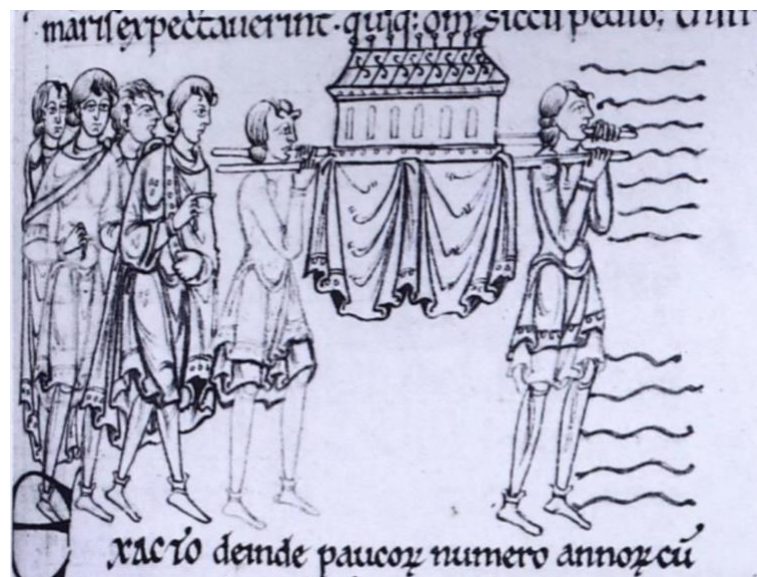 maris expectauerint. quiq: om̄ sicco pede
xacto deinde paucoꝝ numero annoꝝ cū